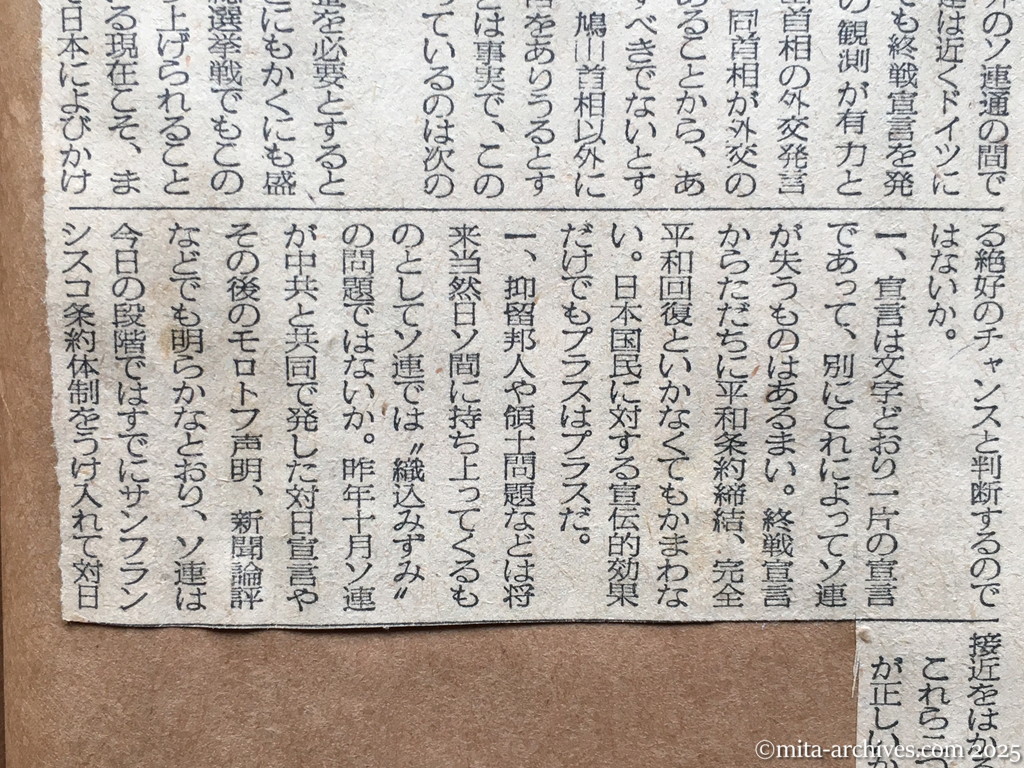 界のソ連通の間で
連は近くドイツに
ても終戦宣言を発
の観測が有力と
山首相の外交発言
同首相が外交の
あることから、あ
すべきでないとす
鳩山首相以外に
言をありうるとす
とは事実で、この
っているのは次の
整を必要とすると
とにもかくにも盛
総選挙戦でもこの
上げられること
る現在こそ、ま
日本によびかけ
る絶好のチャンスと判断するので
はないか。
一、宣言は文字どおり一片の宣言
であって、別にこれによってソ連
が失うものはあるまい。終戦宣言
からただちに平和条約締結、完全
平和回復といかなくてもかまわな
い。日本国民に対する宣伝的効果
だけでもプラスはプラスだ。
一、抑留邦人や領土問題などは将
来当然日ソ間に持ち上ってくるも
のとしてソ連では〝織込みずみ〟
の問題ではないか。昨年十月ソ連
が中共と共同で発した対日宣言や
その後のモロトフ声明、新聞論評
などでも明らかなとおり、ソ連は
今日の段階ではすでにサンフラン
シスコ条約体制をうけ入れて対日
接近をはかる
これら二つ
が正しいか
©mita-archives.com 2025